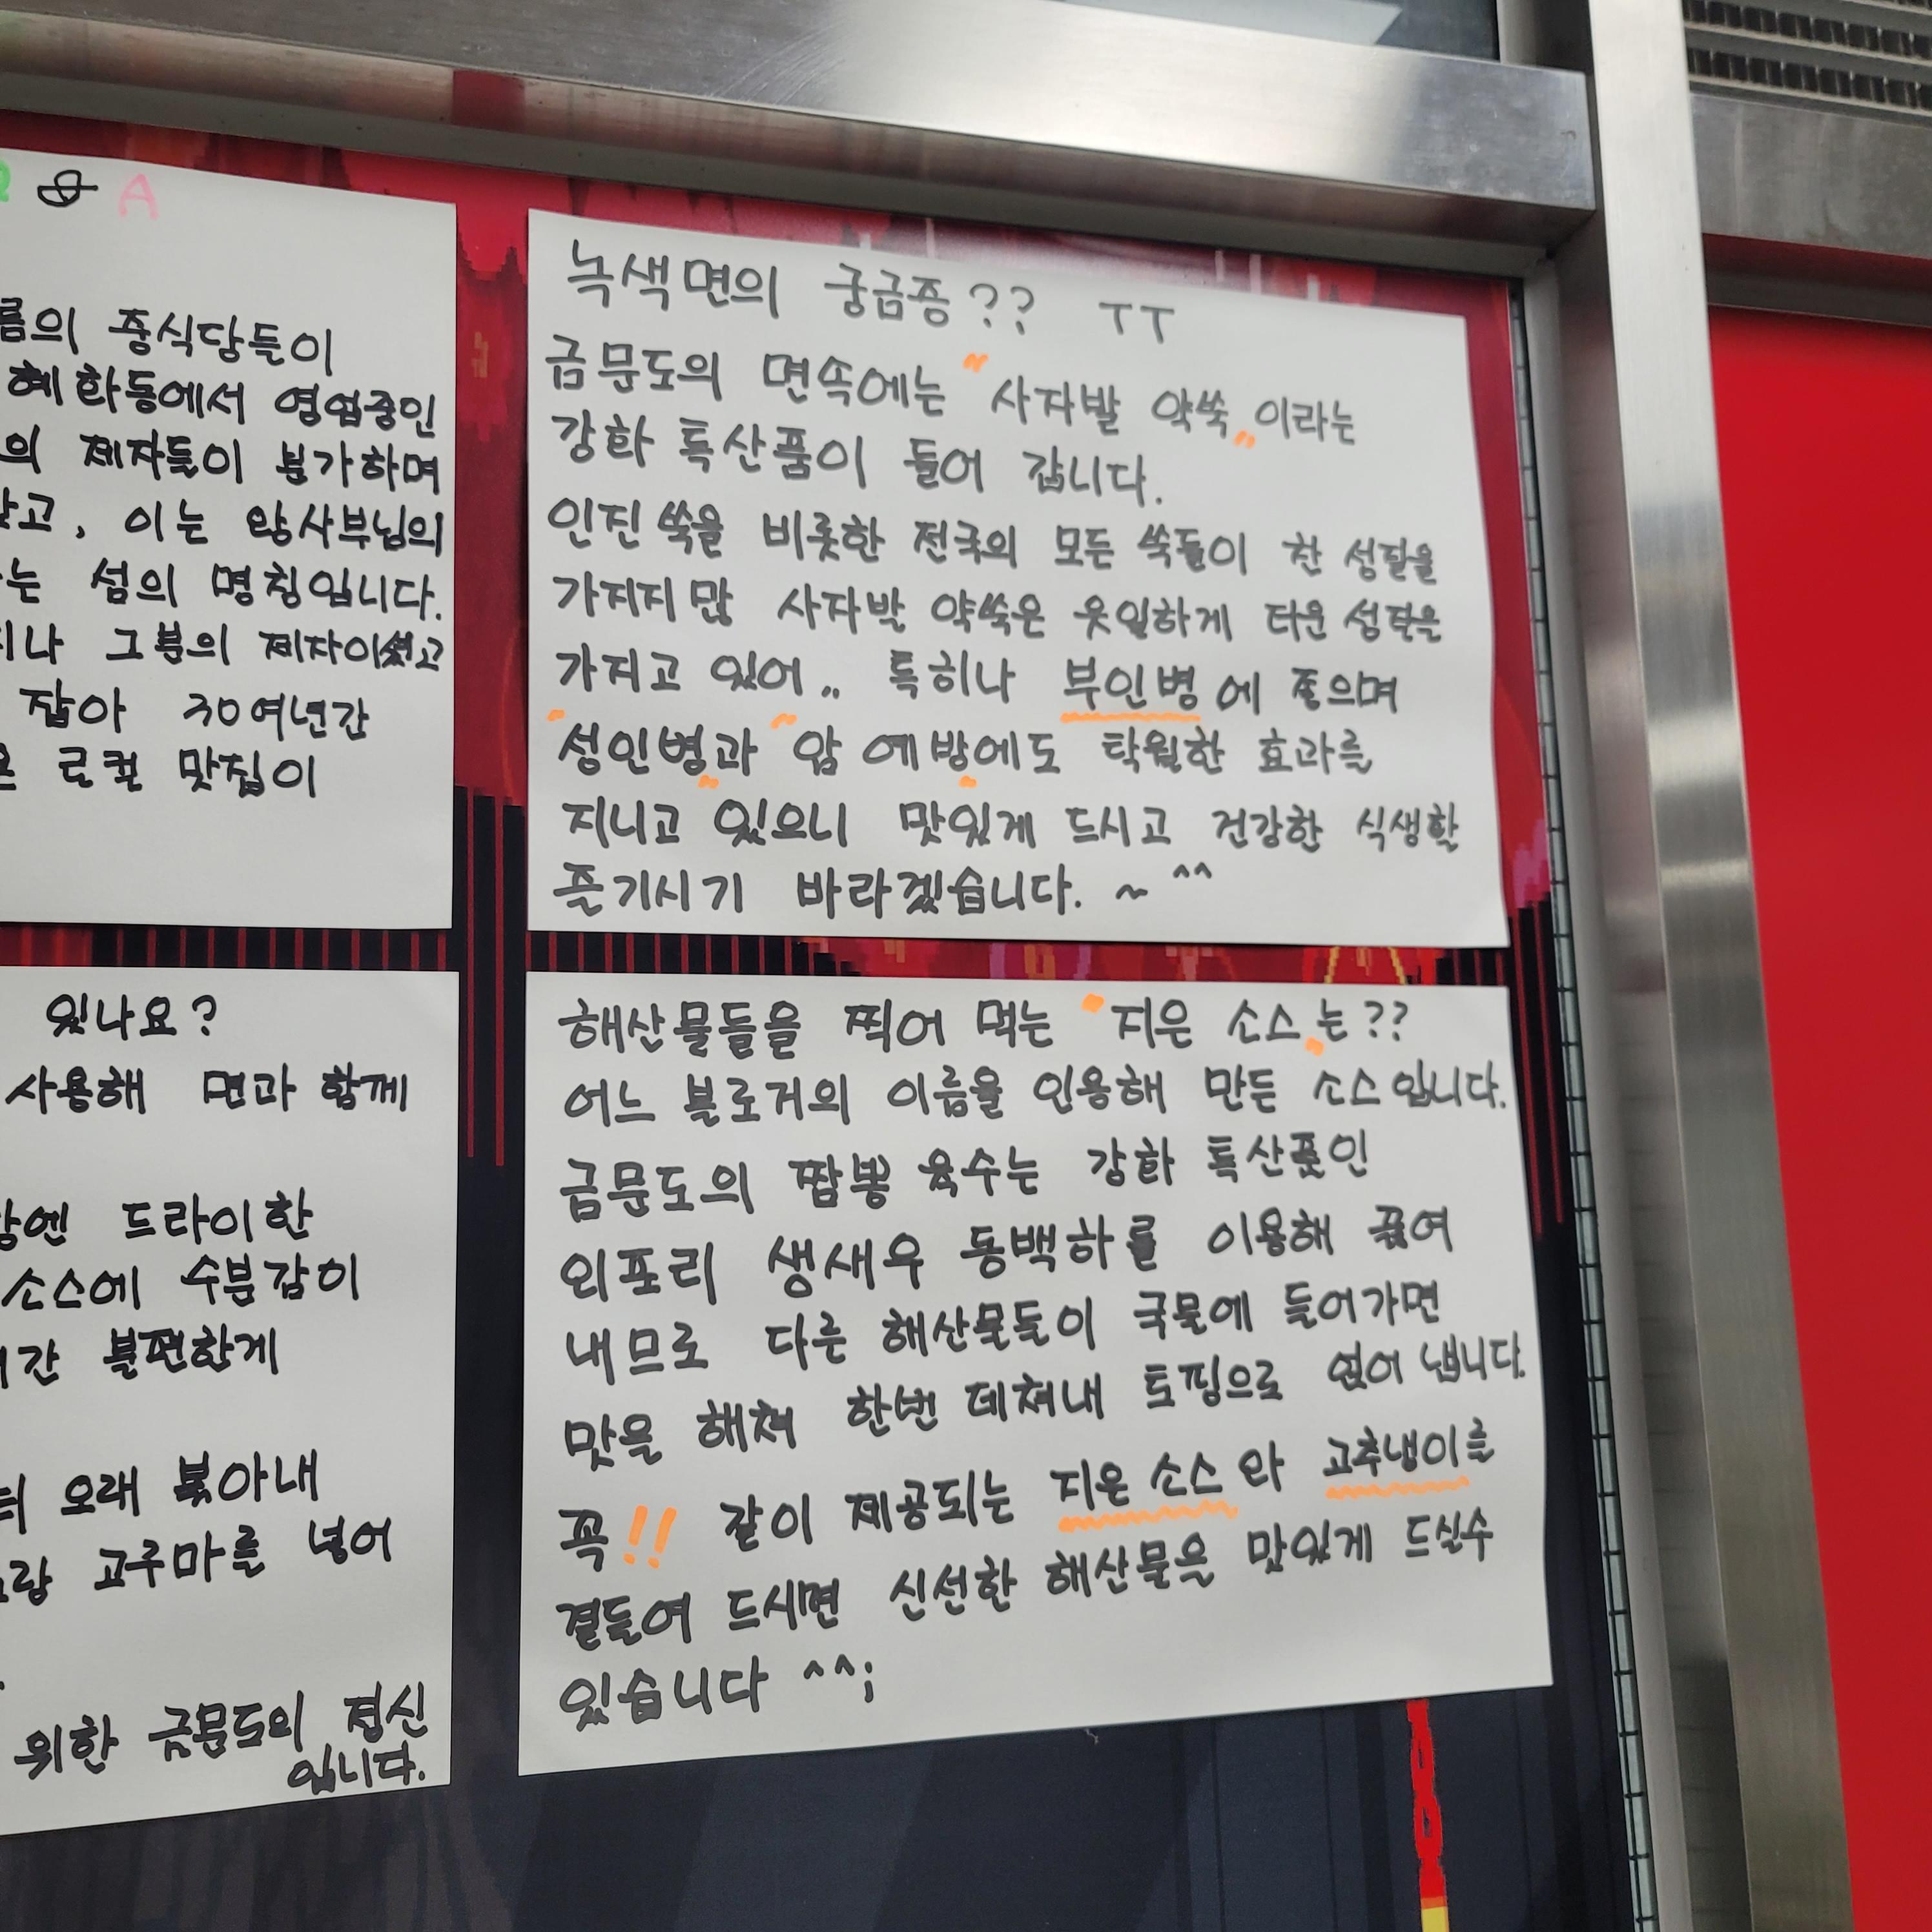 & A
름의 중식당들이
혜화동에서 영업중인
의 제자들이 분가하며
고, 이는 왕사부님의
는 섬의 명칭입니다.
지나 그분의 제자이셨고
잡아 30여년간
로컬 맛집이
녹색면의 궁금증?? TT
금문도의 면속에는 "사자발 약쑥„이라는
강화 특산품이 들어 갑니다.
인진쑥을 비롯한 전국의 모든 쑥들이 찬 성질을
가지지만 사자발 약쑥은 유일하게 더운 성질을
가지고 있어.. 특히나 부인병에 좋으며
"성인병„과 "암 예방„에도 탁월한 효과를
지니고 있으니 맛있게 드시고 건강한 식생활
즐기시기 바라겠습니다. ~ ^^
있나요?
사용해 면과 함께
드라이한
소스에 수분감이
간 불편하게
오래 볶아내
고구마를 넣어
위한 금문도의 정신
입니다.
해산물들을 찍어 먹는 "지은 소스„는??
어느 블로거의 이름을 인용해 만든 소스입니다.
금문도의 짬뽕 육수는 강화 특산품인
외포리 생새우 동백하를 이용해 끓여
내므로 다른 해산물들이 국물에 들어가면
맛을 해쳐 한번 데쳐내 토핑으로 얹어 냅니다.
꼭!! 같이 제공되는 지은 소스와 고추냉이를
곁들여 드시면 신선한 해산물을 맛있게 드실수
있습니다 ^^;